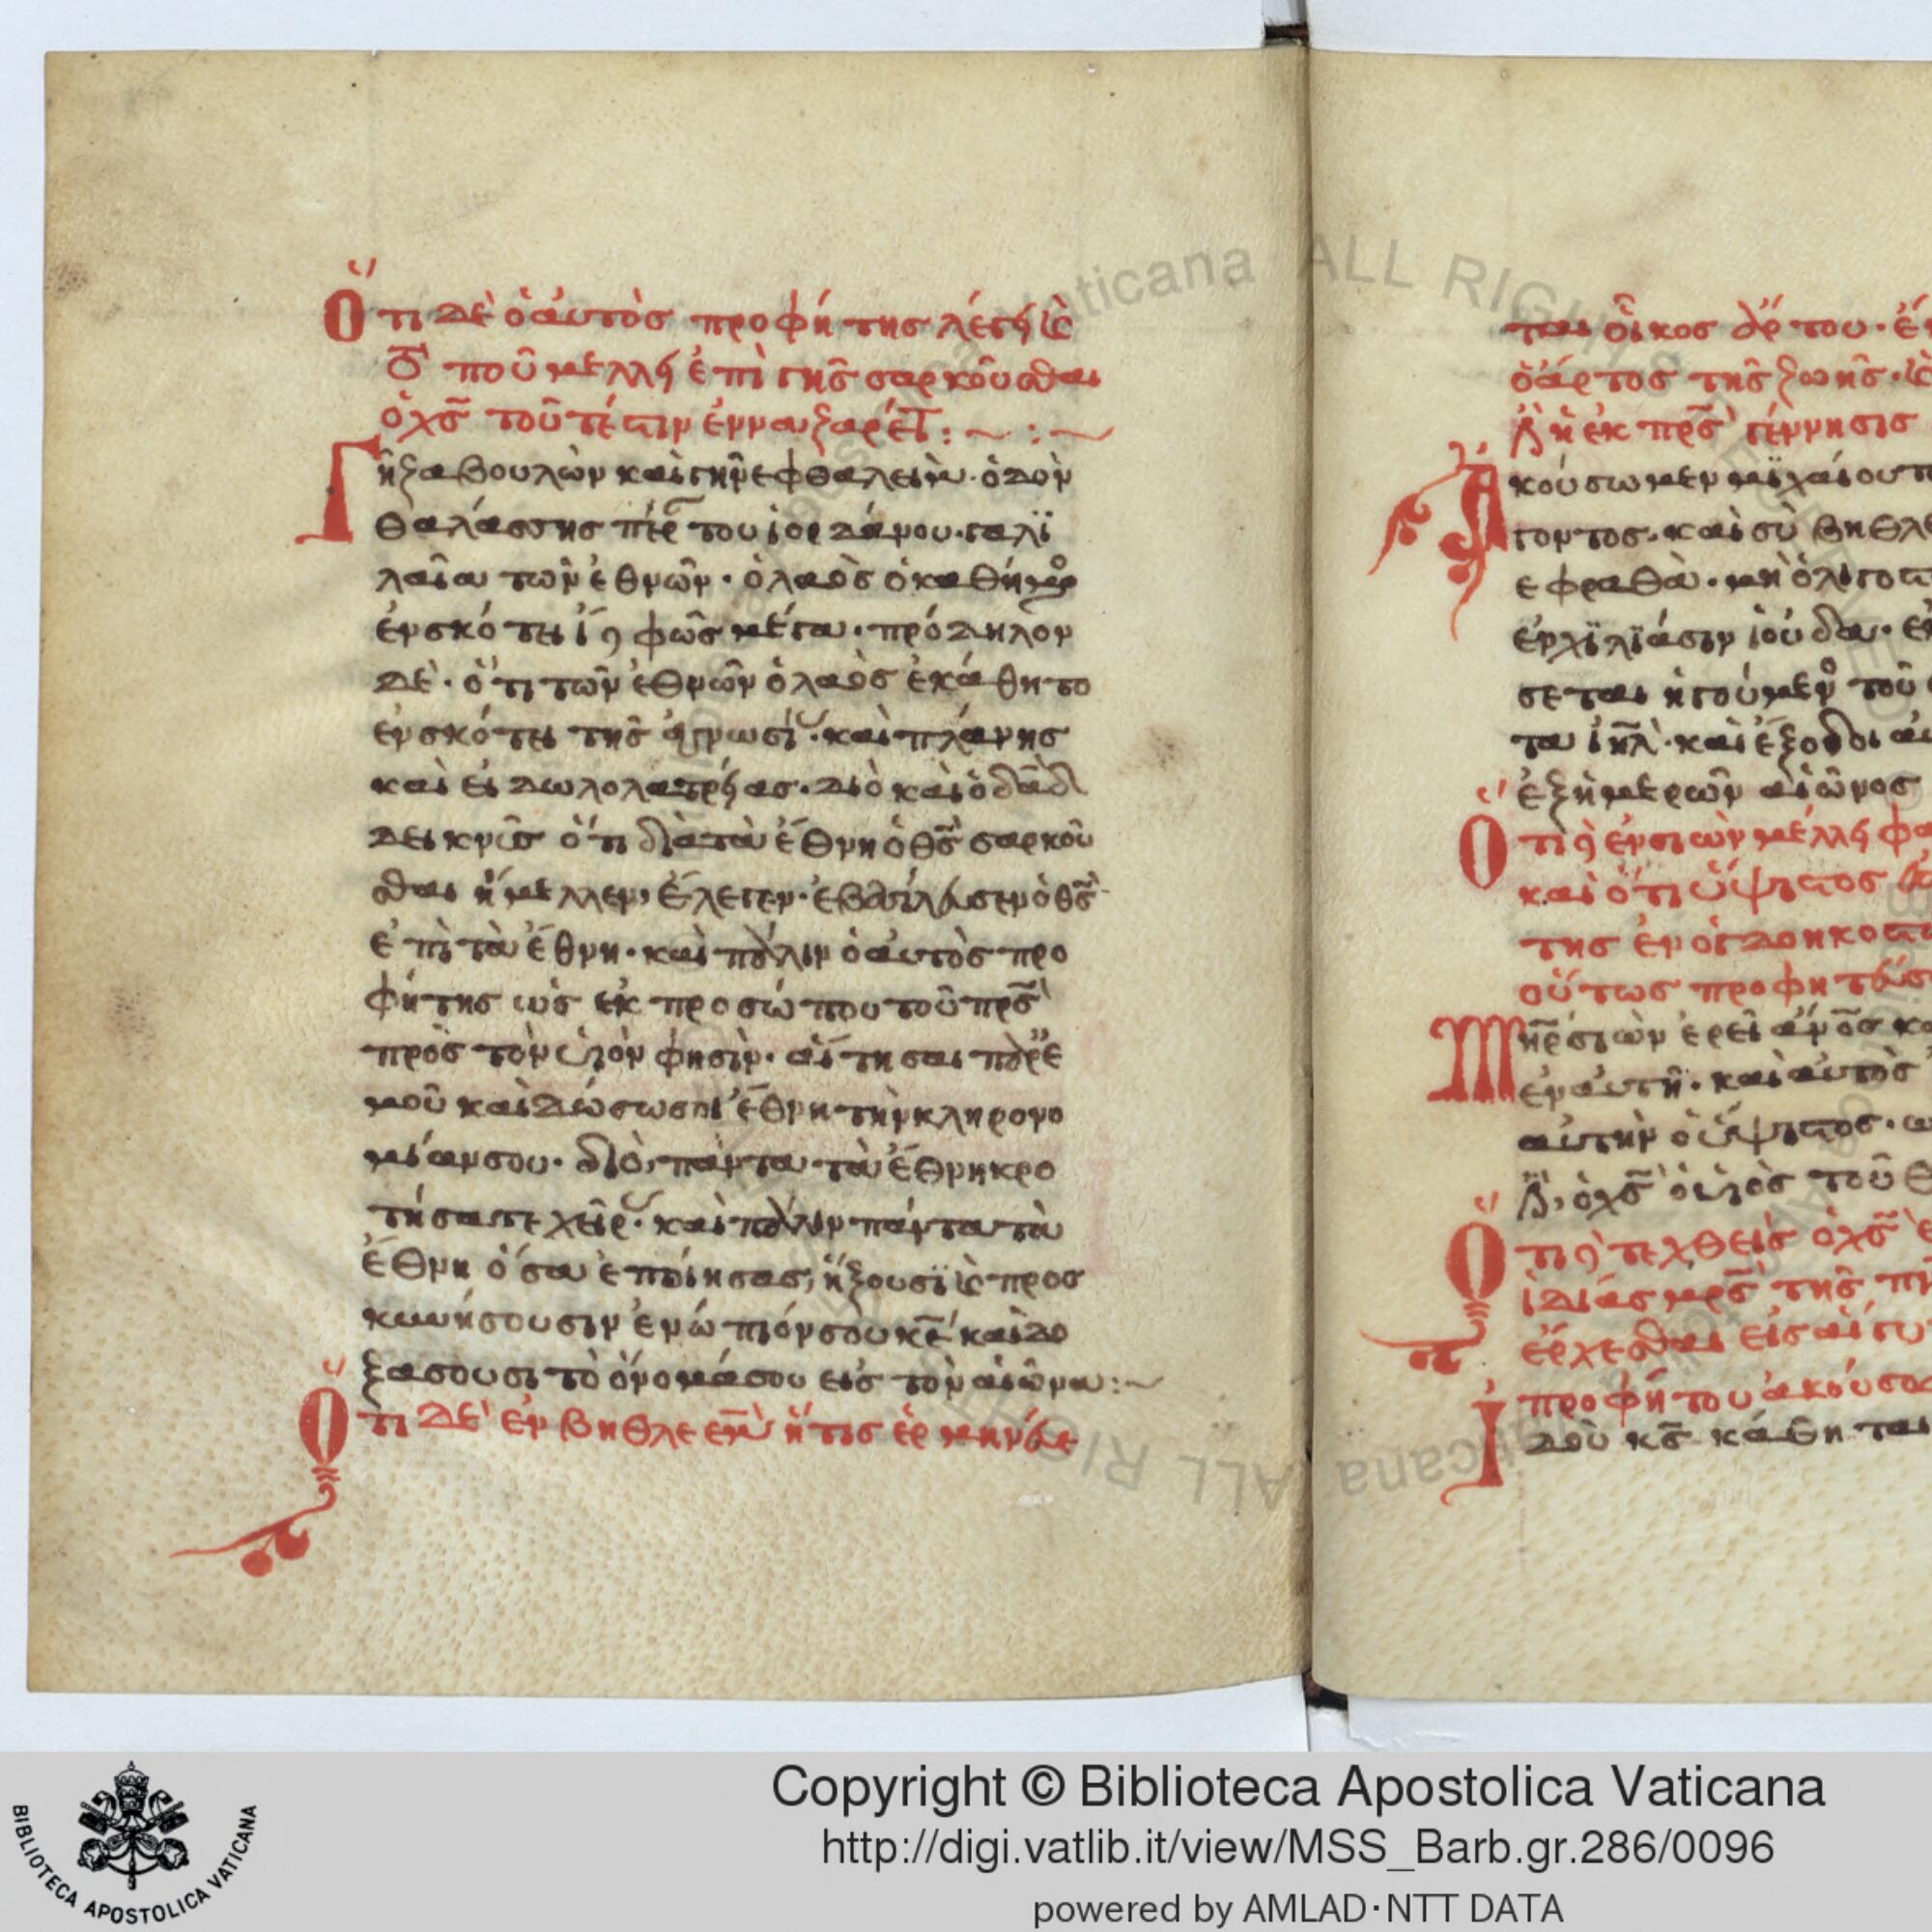 Ὅτι δὲ ὁ αὐτὸς προφήτης λέγει καὶ
τὸ ποῦ μέλλει ἐπὶ γῆς σαρκοῦσθαι
ὁ χς τοῦτέστιν ἐν ναζαρέτ :~ :~
Γῆ ζαβουλὼν καὶ γῆ νεφθαλεὶμ· ὁδὸν
θαλάσσης πέρ του ἰορδάνου· γαλϊ
λαία τῶν ἐθνῶν· ὁ λαὸς ὁ καθήμενος
ἐν σκότει φῶς μέγα· πρόδηλον
δὲ· ὅτι τῶν ἐθνῶν ὁ λαὸς ἐκάθητο
ἐν σκότει τῆς ἀγνωσί· καὶ πλάνης
καὶ εἰδωλολατρείας· διὸ καὶ ὁ δαδ
δεικνὺς ὅτι διὰ τὰ ἔθνη ὁ θς σαρκοῦ
σθαι ἤμελλεν, ἔλεγεν· ἐβασίλευσεν ὁ θς
ἐπὶ τὰ ἔθνη· καὶ πάλιν ὁ αὐτὸς προ
φήτης ὡς ἐκ προσώπου τοῦ πρς
πρὸς τὸν υἱὸν φησὶν· αἴτησαι παρ ἐ
μοῦ καὶ δώσω σοι ἔθνη τὴν κληρονο
μίαν σου· διὸ πάντα τὰ ἔθνη κρο
τήσατε χεῖρ· καὶ πάλιν πάντα τὰ
ἔθνη ὅσα ἐποίησας, ἥξουσϊ καὶ προσ
κυνήσουσιν ἐνώπιόν σου κε καὶ δο
ξάσουσι τὸ ὄνομά σου εἰς τὸν αἰῶνα :~
Ὅτι δὲ ἐν βηθλεὲμ ἥτις ἑρμηνεύε
ται οἶκος ἄρτου·
ὁ ἄρτος τῆς ζωῆς·
ἡ ἐκ πρς γέννησις
Ἀκούσωμεν μϊχαίου
γοντος· καὶ σὺ βηθλε
εφραθὰ· μὴ ὀλιγοσ
ἐν χϊλϊάσιν ἰούδα·
σεται ἡγούμεν τοῦ
τα ιηλ· καὶ ἔξοδοι αὐ
ἐξ ἡμερῶν αἰῶνος
Ὅτι ἐν σιὼν μέλλει φα
καὶ ὅτι ὕψιστος
της ἐν ὀγδοηκοστ
οὕτως προφητεύσ
Μηρ σιὼν ἐρεῖ ανος κα
ἐν αὐτῆ· καὶ αὐτὸς
αὐτὴν ὁ ὕψιστος·
ὁ χς ὁ υἱὸς τοῦ θ
Ὅτι τεχθεὶς ὁ χς
ἰδίας μρς τῆς
ἔρχεσθαι εἰς αἴγυ
προφήτου ἀκούσο
Ἰδοὺ κς κάθηται
Copyright © Biblioteca Apostolica Vaticana
http://digi.vatlib.it/view/MSS_Barb.gr.286/0096
powered by AMLAD·NTT DATA
BIBLIOTECA APOSTOLICA VATICANA